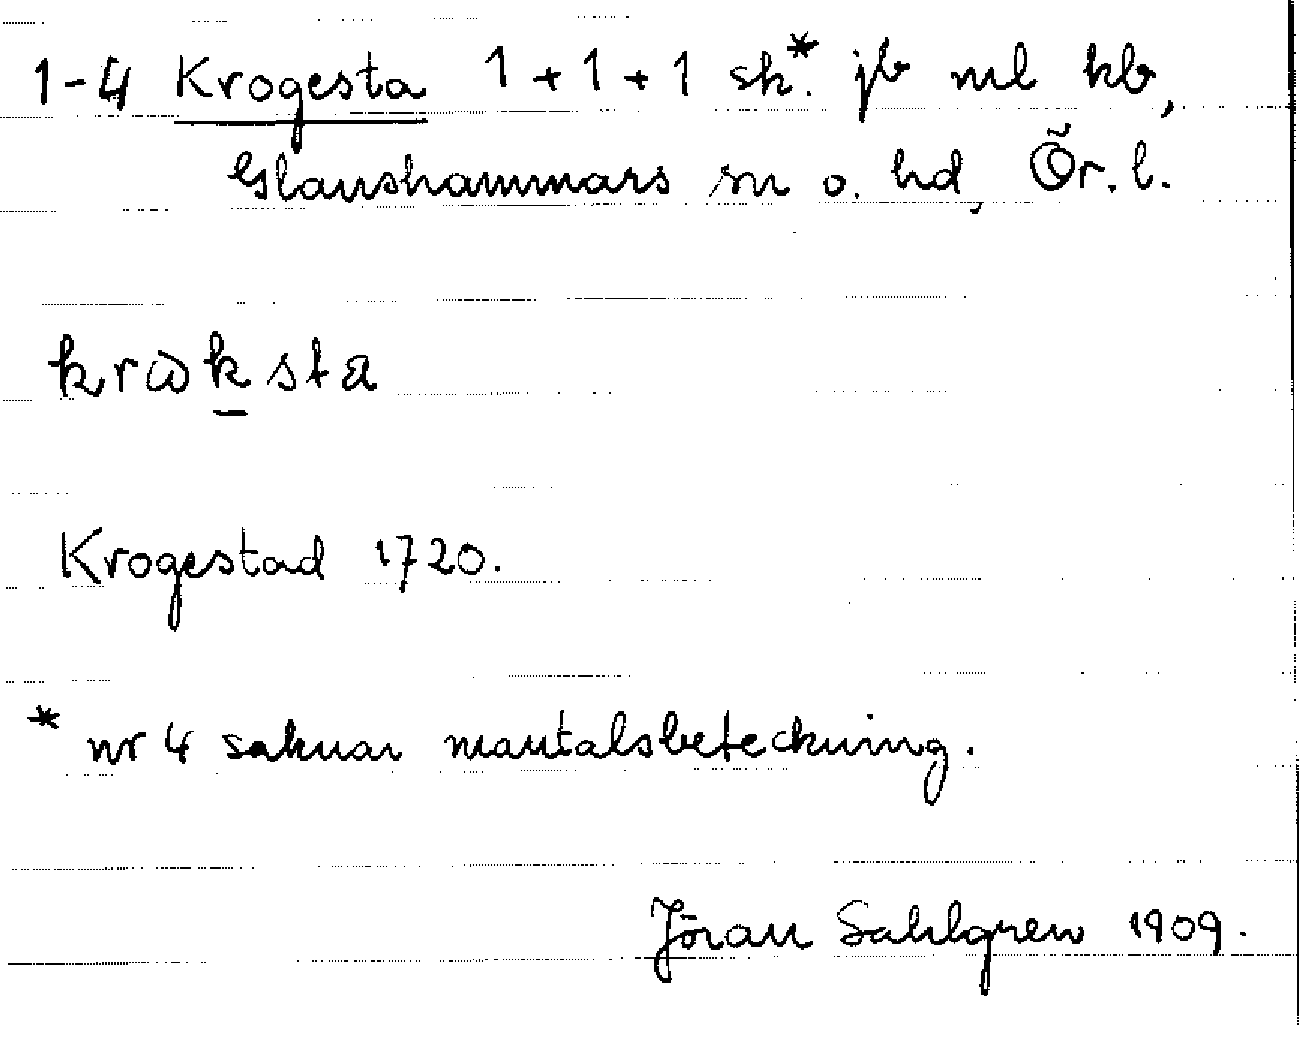 1-4 Krogesta 1+1+1 sk.* jb ml kb,
Glanshammars sn o. hd, Ör. l.
krωksta
Krogestad 1720.
* nr 4 saknar mantalsbeteckning.
Jöran Sahlgren 1909.